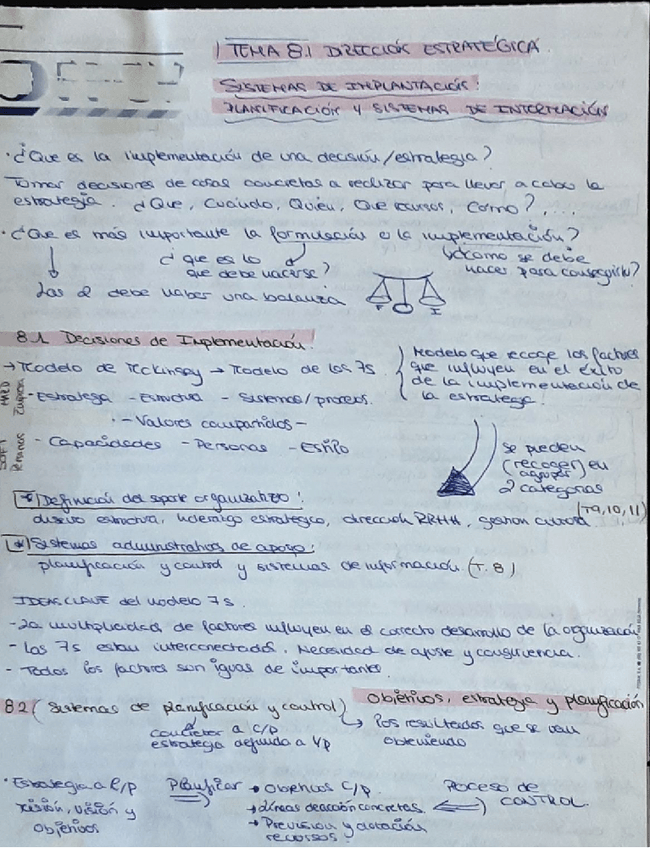 TEMA 8.1 DIRECCIÓN ESTRATÉGICA.
SISTEMAS DE IMPLANTACIÓN:
PLANIFICACIÓN Y SISTEMAS DE INFORMACIÓN
· ¿Que es la implementación de una decisión/estrategia?
Tomar decisiones de cosas concretas a realizar para llevar a cabo la
estrategia. ¿Que, Cuándo, Quién, Que cursos, Como?, ...
· ¿Que es más importante la formulación o la implementación?
¿que es lo que debe hacerse?
↳ Como se debe hacer para conseguirlo?
Las 2 debe haber una balanza
F I
8.1 Decisiones de Implementación.
→ Modelo de Mckinsey → Modelo de las 7s
Modelo que recoge los factores
que influyen en el éxito
de la implementación de
la estrategia.
HARD
- Estrategia - Estructura - Sistemas/procesos.
- Valores compartidos -
SOFT
- Capacidades - Personas - Estilo
se pueden
(recoger) en
agrupar
2 categorias
* Definición del soporte organizativo:
(T9,10,11)
diseño estructura, liderazgo estratégico, dirección RRHH, gestion cultura
* Sistemas administrativos de apoyo:
planificación y control y sistemas de información. (T. 8)
IDEAS CLAVE del modelo 7s.
- La multiplicidad de factores influyen en el correcto desarrollo de la organización
- Las 7s estan interconectados. Necesidad de ajuste y congruencia.
- Todos los factores son igual de importantes.
8.2 (Sistemas de planificación y control) Objetivos, estrategia y planificación
concretar a C/p
estrategia definida a l/p
↳ Los resultados que se van
obteniendo
· Estrategia a l/p
misión, visión y
objetivos
Planificar
→ Objetivos C/p.
→ Líneas de acción concretas.
→ Prevision y dotación
recursos.
PROCESO DE
CONTROL.